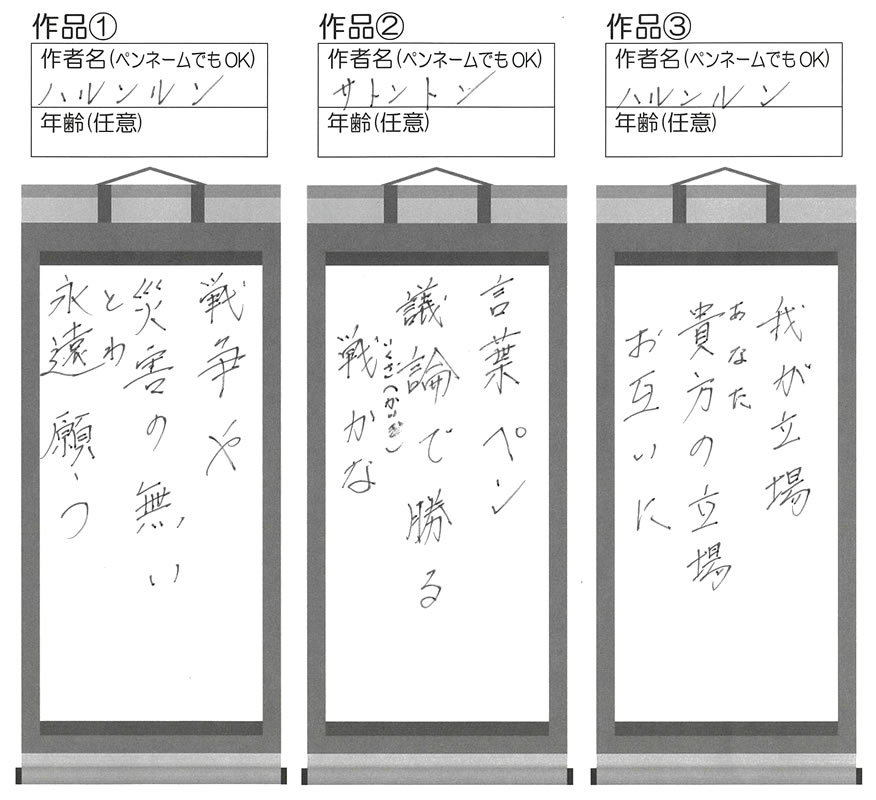 作品①
作者名(ペンネームでもOK)
ハルンルン
年齢(任意)
戦争や
災害の無い
とわ
永遠願う
作品②
作者名(ペンネームでもOK)
サトントン
年齢(任意)
言葉ペン
議論で勝る
いくさ(か)
戦かな
作品③
作者名(ペンネームでもOK)
ハルンルン
年齢(任意)
我が立場
あなた
貴方の立場
お互いに